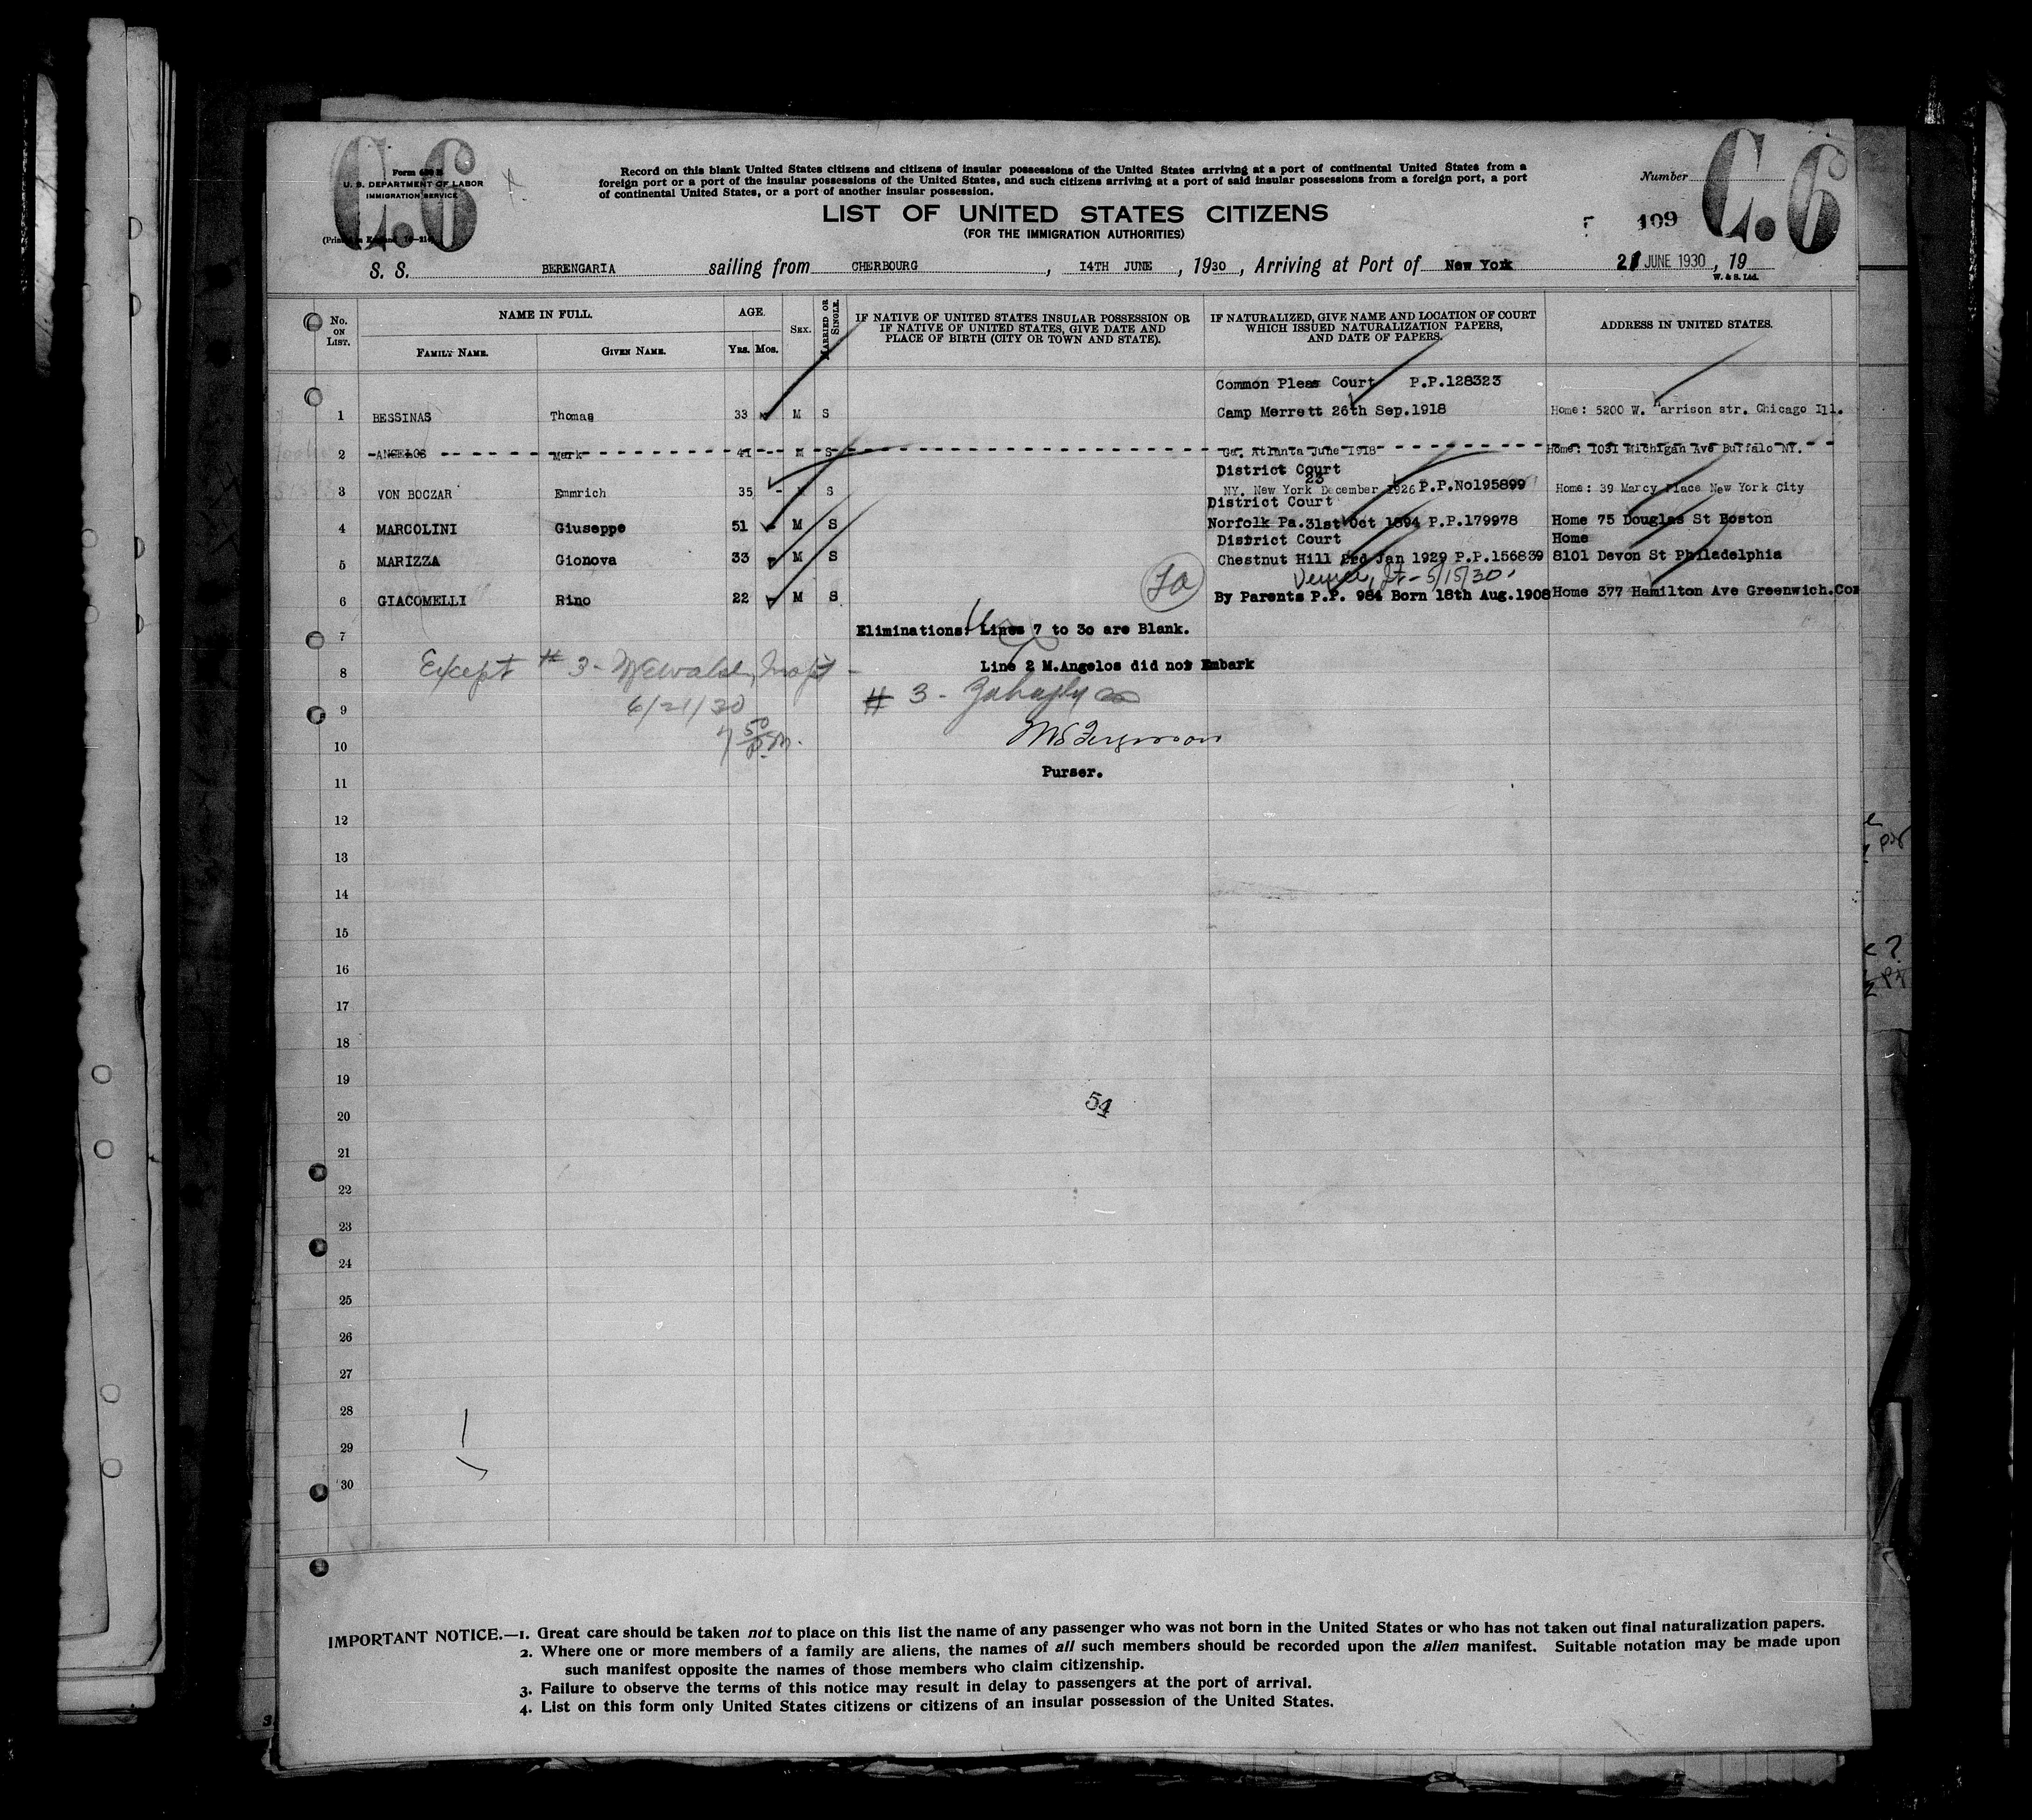 C.6
Form 630 B
U. S. DEPARTMENT OF LABOR
IMMIGRATION SERVICE
Record on this blank United States citizens and citizens of insular possessions of the United States arriving at a port of continental United States from a
foreign port or a port of the insular possessions of the United States, and such citizens arriving at a port of said insular possessions from a foreign port, a port
of continental United States, or a port of another insular possession.
Number
C.6
LIST OF UNITED STATES CITIZENS
109
(FOR THE IMMIGRATION AUTHORITIES)
S. S. BERENGARIA sailing from CHERBOURG, 14TH JUNE, 1930, Arriving at Port of New York 21 JUNE 1930, 19
W. & S. Ltd.
No. ON LIST. NAME IN FULL. AGE. SEX. MARRIED OR SINGLE. IF NATIVE OF UNITED STATES INSULAR POSSESSION OR IF NATIVE OF UNITED STATES, GIVE DATE AND PLACE OF BIRTH (CITY OR TOWN AND STATE). IF NATURALIZED, GIVE NAME AND LOCATION OF COURT WHICH ISSUED NATURALIZATION PAPERS, AND DATE OF PAPERS. ADDRESS IN UNITED STATES.
FAMILY NAME. GIVEN NAME. YRS. MOS.
Common Pleas Court P.P.128323
1 BESSINAS Thomas 33 M S Camp Merrett 26th Sep.1918 Home: 5200 W. Harrison str. Chicago Ill.
2 ANGELOS Mark 41 M S Ga. Atlanta June 1918 Home: 1031 Michigan Ave Buffalo NY.
District Court
23
3 VON BOCZAR Emmrich 35 - M S NY. New York December 1926 P.P.No195899 Home: 39 Marcy Place New York City
District Court
4 MARCOLINI Giuseppe 51 - M S Norfolk Pa.31st Oct 1894 P.P.179978 Home 75 Douglas St Boston
District Court Home
5 MARIZZA Gionova 33 - M S Chestnut Hill 2rd Jan 1929 P.P.156839 8101 Devon St Philadelphia
5/15/30
6 GIACOMELLI Rino 22 - M S By Parents P.P. 984 Born 18th Aug.1908 Home 377 Hamilton Ave Greenwich.Con
7 Eliminations: Lines 7 to 30 are Blank.
8 Except # 3 - Line 2 M.Angelos did not Embark
# 3 -
9 6/21/30
10 7 50 P.M.
Purser.
11
12
13
14
15
16
17
18
19
20 54
21
22
23
24
25
26
27
28
29
30
IMPORTANT NOTICE.—1. Great care should be taken not to place on this list the name of any passenger who was not born in the United States or who has not taken out final naturalization papers.
2. Where one or more members of a family are aliens, the names of all such members should be recorded upon the alien manifest. Suitable notation may be made upon
such manifest opposite the names of those members who claim citizenship.
3. Failure to observe the terms of this notice may result in delay to passengers at the port of arrival.
4. List on this form only United States citizens or citizens of an insular possession of the United States.